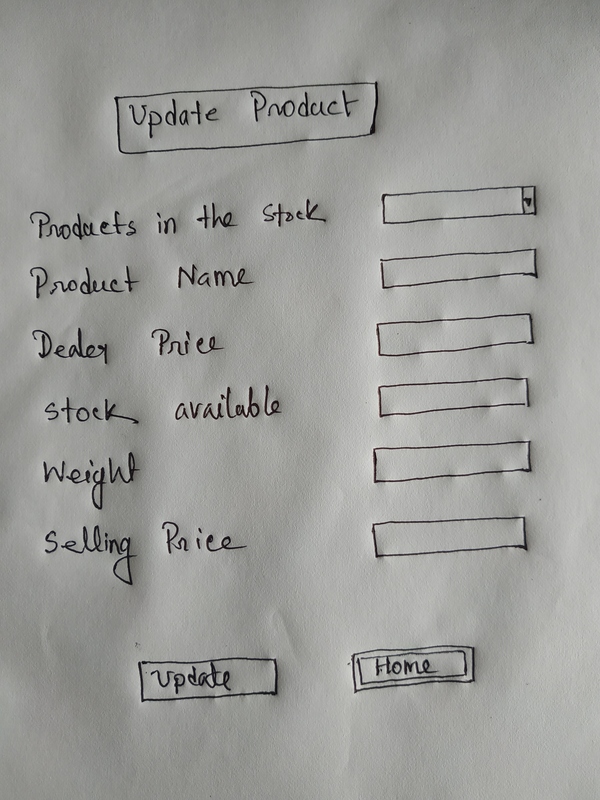 Update Product
Products in the Stock
Product Name
Dealer Price
Stock available
Weight
Selling Price
Update
Home